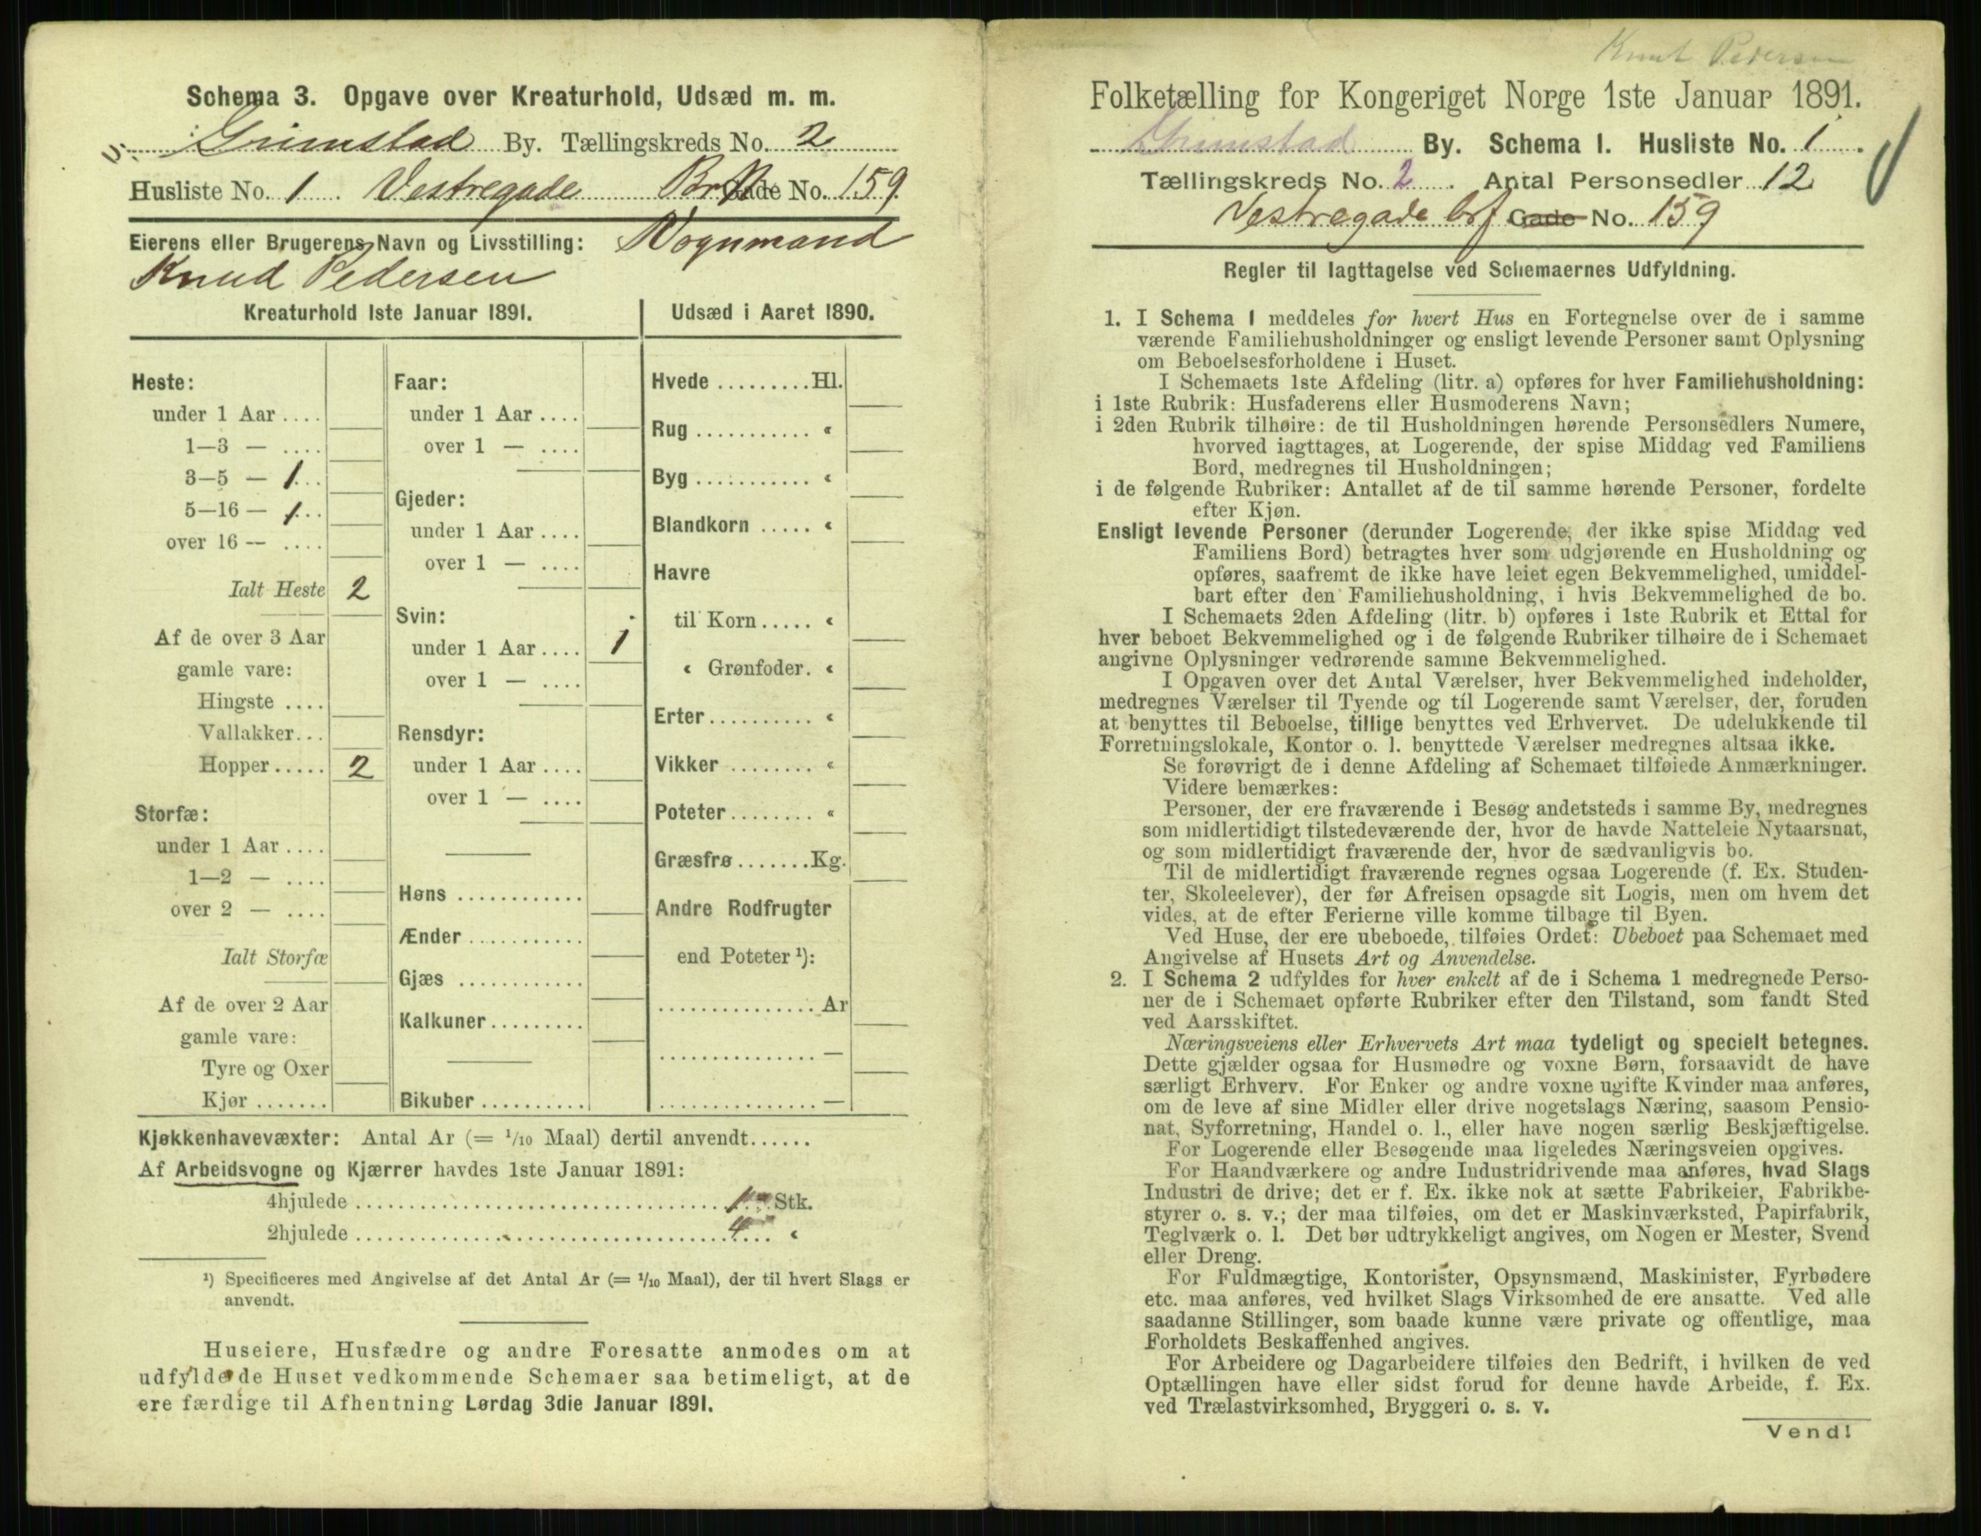 Schema 3. Opgave over Kreaturhold, Udsæd m. m.
Grimstad By. Tællingskreds No. 2
Husliste No. 1 Vestregade Gade No. 159
Eierens eller Brugerens Navn og Livsstilling: Vognmand
Knud Pedersen
Kreaturhold 1ste Januar 1891.
Heste:
under 1 Aar ....
1—3 — ....
3—5 — 1
5—16 — 1
over 16 — ....
Ialt Heste 2
Af de over 3 Aar
gamle vare:
Hingste ....
Vallakker...
Hopper ..... 2
Storfæ:
under 1 Aar ....
1—2 — ....
over 2 — ....
Ialt Storfæ
Af de over 2 Aar
gamle vare:
Tyre og Oxer
Kjør .......
Faar:
under 1 Aar ....
over 1 — ....
Gjeder:
under 1 Aar ....
over 1 — ....
Svin:
under 1 Aar .... 1
over 1 — ....
Rensdyr:
under 1 Aar ....
over 1 — ....
Høns ............
Ænder ...........
Gjæs ............
Kalkuner.........
Bikuber ..........
Udsæd i Aaret 1890.
Hvede .........Hl.
Rug ........... "
Byg ........... "
Blandkorn ..... "
Havre
til Korn..... "
" Grønfoder. "
Erter.......... "
Vikker ........ "
Poteter........ "
Græsfrø .......Kg.
Andre Rodfrugter
end Poteter ¹):
............... Ar
............... —
............... —
Kjøkkenhavevæxter: Antal Ar (= 1/10 Maal) dertil anvendt......
Af Arbeidsvogne og Kjærrer havdes 1ste Januar 1891:
4hjulede .................... 1 Stk.
2hjulede .................... 4 "
¹) Specificeres med Angivelse af det Antal Ar (= 1/10 Maal), der til hvert Slags er
anvendt.
Huseiere, Husfædre og andre Foresatte anmodes om at
udfylde de Huset vedkommende Schemaer saa betimeligt, at de
ere færdige til Afhentning Lørdag 3die Januar 1891.
Knut Pedersen
Folketælling for Kongeriget Norge 1ste Januar 1891.
Grimstad By. Schema I. Husliste No. 1
Tællingskreds No. 2. Antal Personsedler 12
Vestregade Gade No. 159
Regler til Iagttagelse ved Schemaernes Udfyldning.
1. I Schema 1 meddeles for hvert Hus en Fortegnelse over de i samme
værende Familiehusholdninger og ensligt levende Personer samt Oplysning
om Beboelsesforholdene i Huset.
I Schemaets 1ste Afdeling (litr. a) opføres for hver Familiehusholdning:
i 1ste Rubrik: Husfaderens eller Husmoderens Navn;
i 2den Rubrik tilhøire: de til Husholdningen hørende Personsedlers Numere,
hvorved iagttages, at Logerende, der spise Middag ved Familiens
Bord, medregnes til Husholdningen;
i de følgende Rubriker: Antallet af de til samme hørende Personer, fordelte
efter Kjøn.
Ensligt levende Personer (derunder Logerende, der ikke spise Middag ved
Familiens Bord) betragtes hver som udgjørende en Husholdning og
opføres, saafremt de ikke have leiet egen Bekvemmelighed, umiddel-
bart efter den Familiehusholdning, i hvis Bekvemmelighed de bo.
I Schemaets 2den Afdeling (litr. b) opføres i 1ste Rubrik et Ettal for
hver beboet Bekvemmelighed og i de følgende Rubriker tilhøire de i Schemaet
angivne Oplysninger vedrørende samme Bekvemmelighed.
I Opgaven over det Antal Værelser, hver Bekvemmelighed indeholder,
medregnes Værelser til Tyende og til Logerende samt Værelser, der, foruden
at benyttes til Beboelse, tillige benyttes ved Erhvervet. De udelukkende til
Forretningslokale, Kontor o. l. benyttede Værelser medregnes altsaa ikke.
Se forøvrigt de i denne Afdeling af Schemaet tilføiede Anmærkninger.
Videre bemærkes:
Personer, der ere fraværende i Besøg andetsteds i samme By, medregnes
som midlertidigt tilstedeværende der, hvor de havde Natteleie Nytaarsnat,
og som midlertidigt fraværende der, hvor de sædvanligvis bo.
Til de midlertidigt fraværende regnes ogsaa Logerende (f. Ex. Studen-
ter, Skoleelever), der før Afreisen opsagde sit Logis, men om hvem det
vides, at de efter Ferierne ville komme tilbage til Byen.
Ved Huse, der ere ubeboede, tilføies Ordet: Ubeboet paa Schemaet med
Angivelse af Husets Art og Anvendelse.
2. I Schema 2 udfyldes for hver enkelt af de i Schema 1 medregnede Perso-
ner de i Schemaet opførte Rubriker efter den Tilstand, som fandt Sted
ved Aarsskiftet.
Næringsveiens eller Erhvervets Art maa tydeligt og specielt betegnes.
Dette gjælder ogsaa for Husmødre og voxne Børn, forsaavidt de have
særligt Erhverv. For Enker og andre voxne ugifte Kvinder maa anføres,
om de leve af sine Midler eller drive nogetslags Næring, saasom Pensio-
nat, Syforretning, Handel o. l., eller have nogen særlig Beskjæftigelse.
For Logerende eller Besøgende maa ligeledes Næringsveien opgives.
For Haandværkere og andre Industridrivende maa anføres, hvad Slags
Industri de drive; det er f. Ex. ikke nok at sætte Fabrikeier, Fabrikbe-
styrer o. s. v.; der maa tilføies, om det er Maskinværksted, Papirfabrik,
Teglværk o. l. Det bør udtrykkeligt angives, om Nogen er Mester, Svend
eller Dreng.
For Fuldmægtige, Kontorister, Opsynsmænd, Maskinister, Fyrbødere
etc. maa anføres, ved hvilket Slags Virksomhed de ere ansatte. Ved alle
saadanne Stillinger, som baade kunne være private og offentlige, maa
Forholdets Beskaffenhed angives.
For Arbeidere og Dagarbeidere tilføies den Bedrift, i hvilken de ved
Optællingen have eller sidst forud for denne havde Arbeide, f. Ex.
ved Trælastvirksomhed, Bryggeri o. s. v.
Vend!